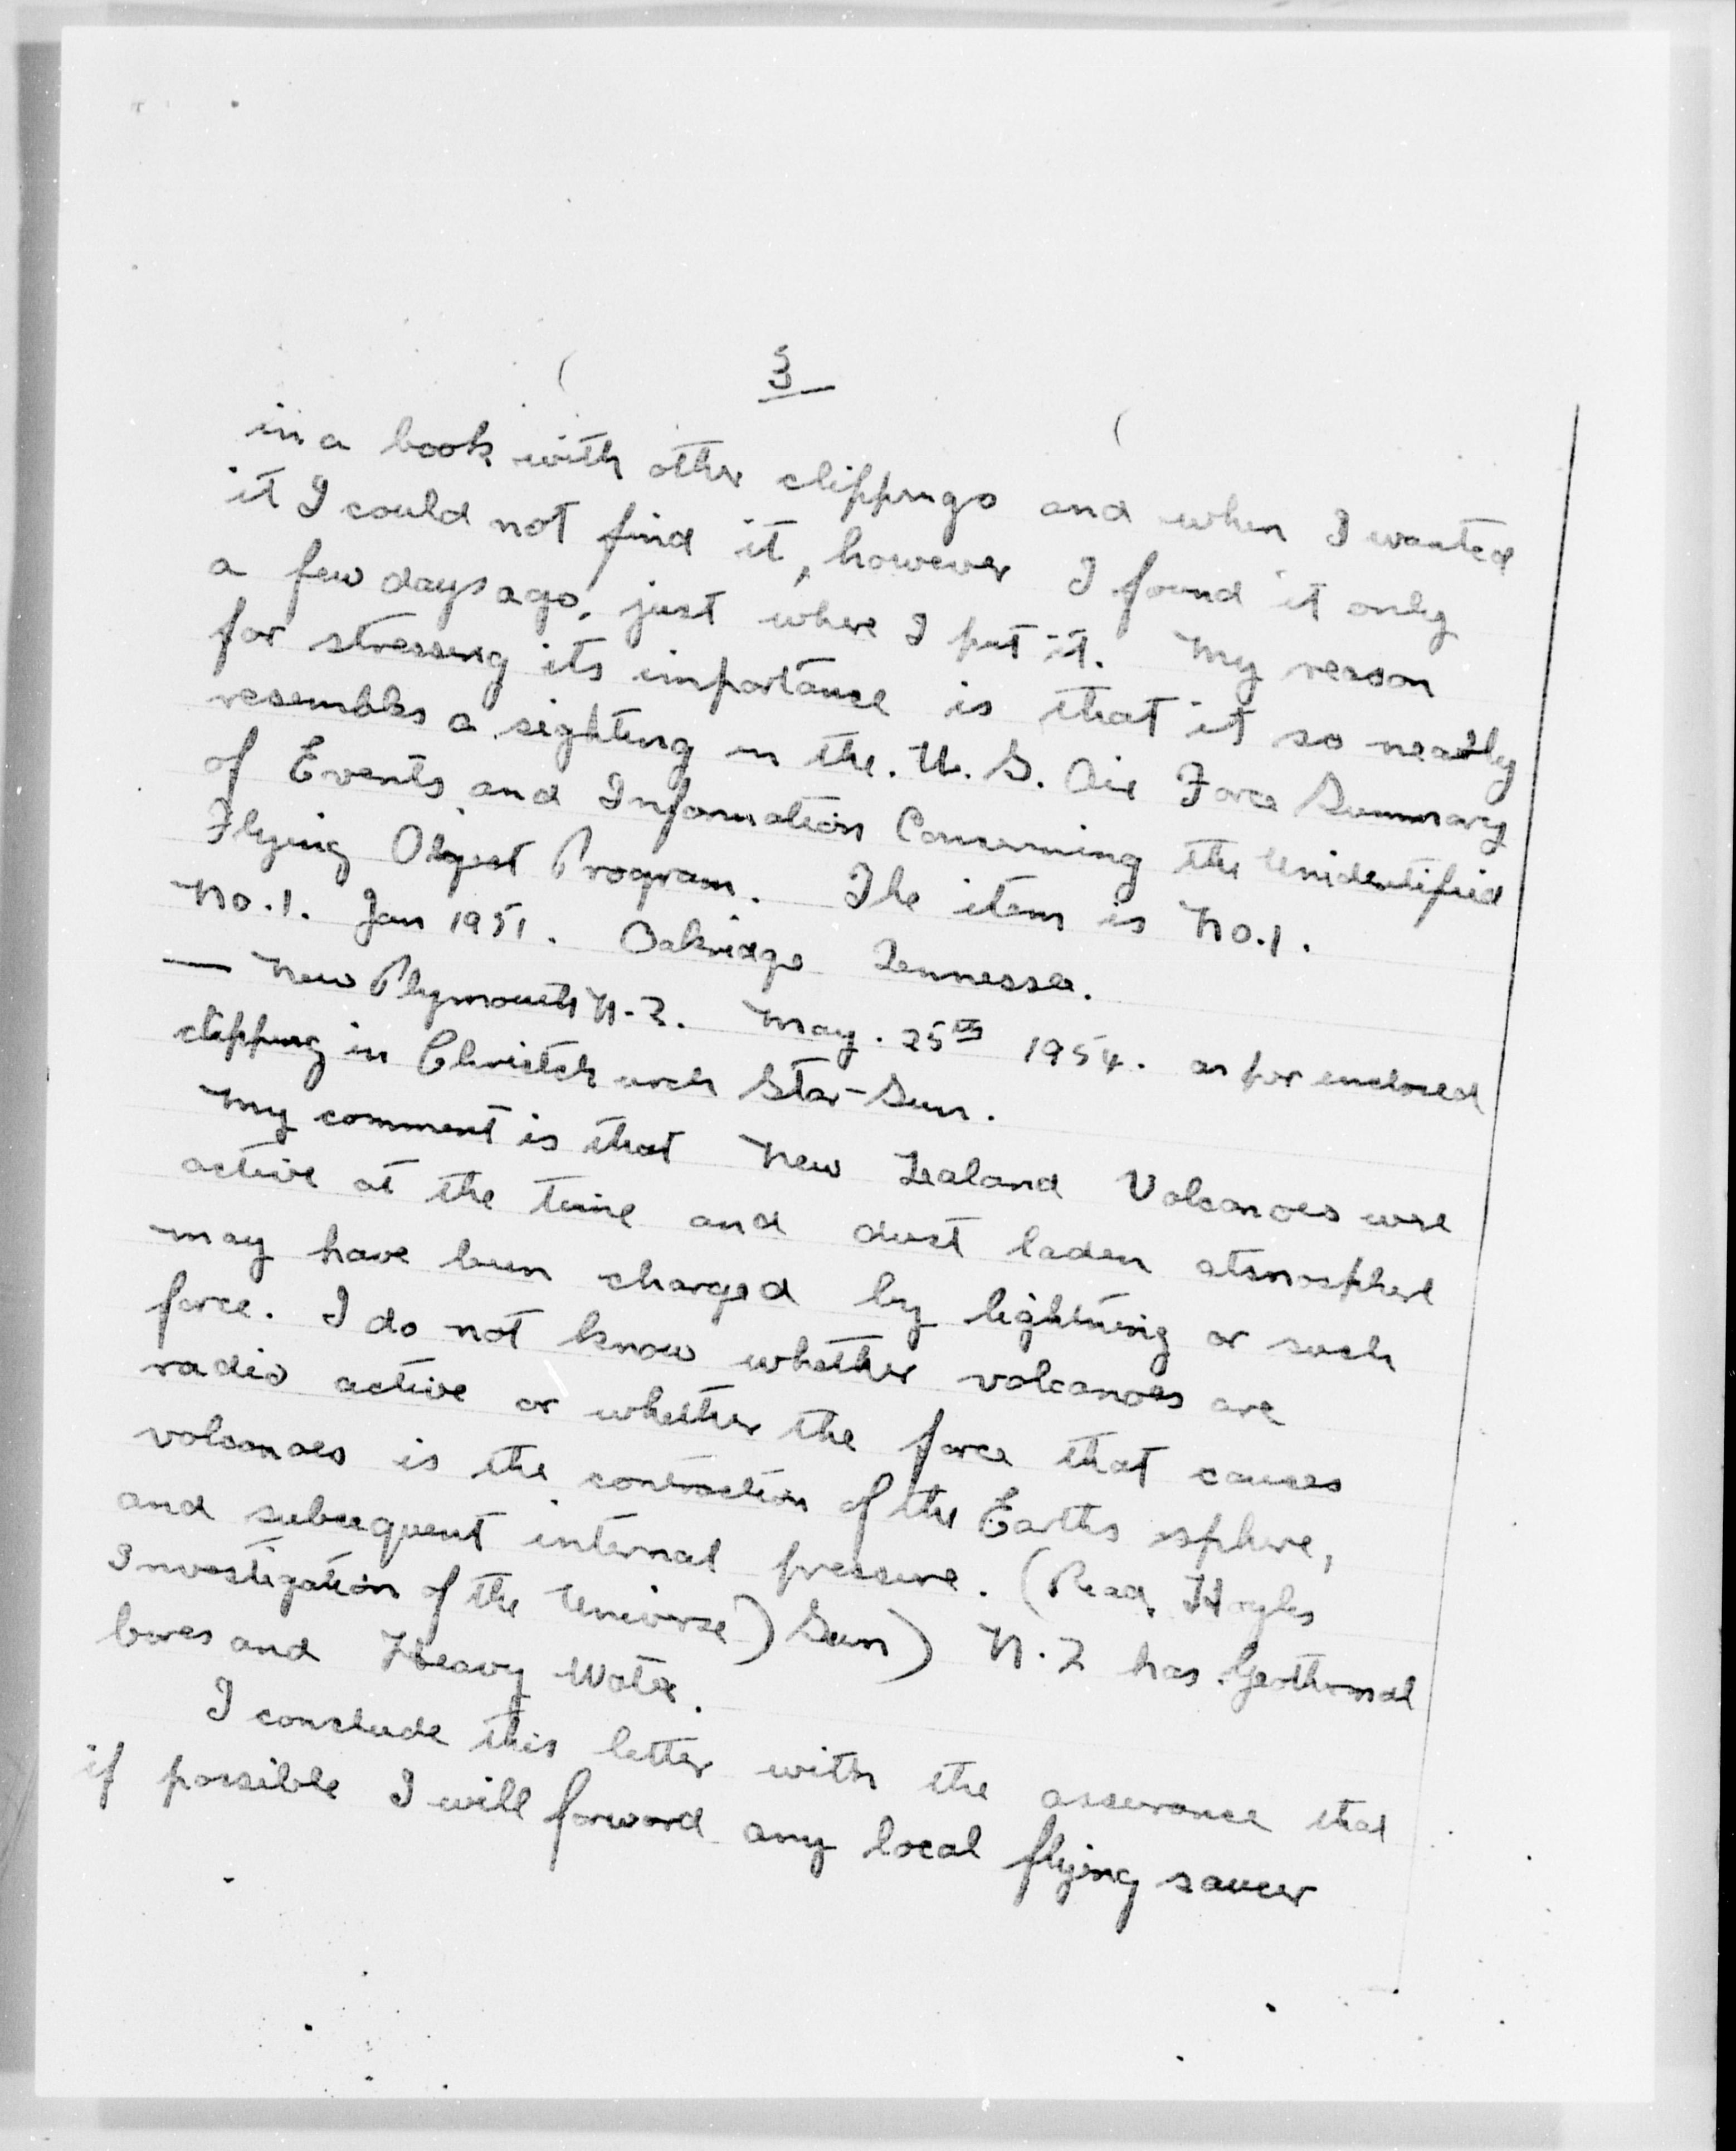 3
in a book with other clippings and when I wanted
it I could not find it, however I found it only
a few days ago, just where I put it. My reason
for stressing its importance is that it so nearly
resembles a sighting in the. U. S. Air Force Summary
of Events and Information Concerning the Unidentified
Flying Object Program. The item is No. 1.
No. 1. Jan 1951. Oakridge Tennessee.
— New Plymouth N. Z. May. 25th 1954. as per enclosed
clipping in Christchurch Star-Sun.
My comment is that New Zealand Volcanoes were
active at the time and dust laden atmosphere
may have been charged by lightning or such
force. I do not know whether volcanoes are
radio active or whether the force that causes
volcanoes is the contraction of the Earths sphere,
and subsequent internal pressure. (Read Hoyles
Investigation of the Universe) Sun) N. Z has Geothermal
bores and Heavy Water.
I conclude this letter with the assurance that
if possible I will forward any local flying saucer